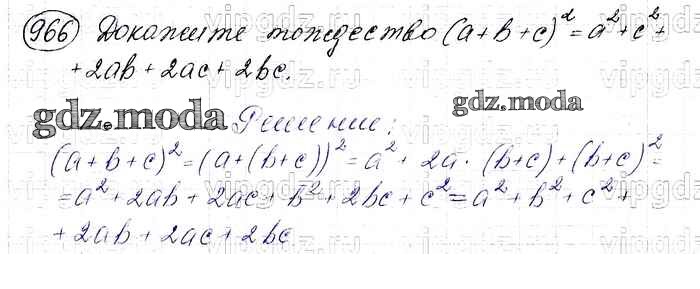 966 Докажите тождество (a+b+c)² = a² + c² +
+ 2ab + 2ac + 2bc.
gdz.moda
gdz.moda Решение:
(a+b+c)² = (a+(b+c))² = a² + 2a · (b+c) + (b+c)² =
= a² + 2ab + 2ac + b² + 2bc + c² = a² + b² + c² +
+ 2ab + 2ac + 2bc